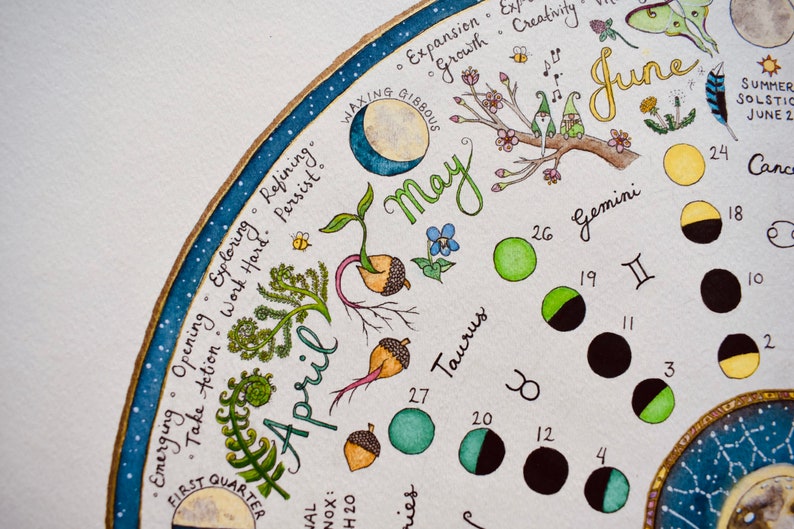 ° Expansion °
° Growth ° Creativity °
° Emerging ° Opening ° Exploring ° Refining °
° Take Action ° Work Hard ° Persist °
WAXING GIBBOUS
FIRST QUARTER
June
SUMMER
SOLSTICE
JUNE 2
May
April
Cance
24
18
10
2
Gemini
26
19
11
3
Taurus
27
20
12
4
ries
NOX:
H20